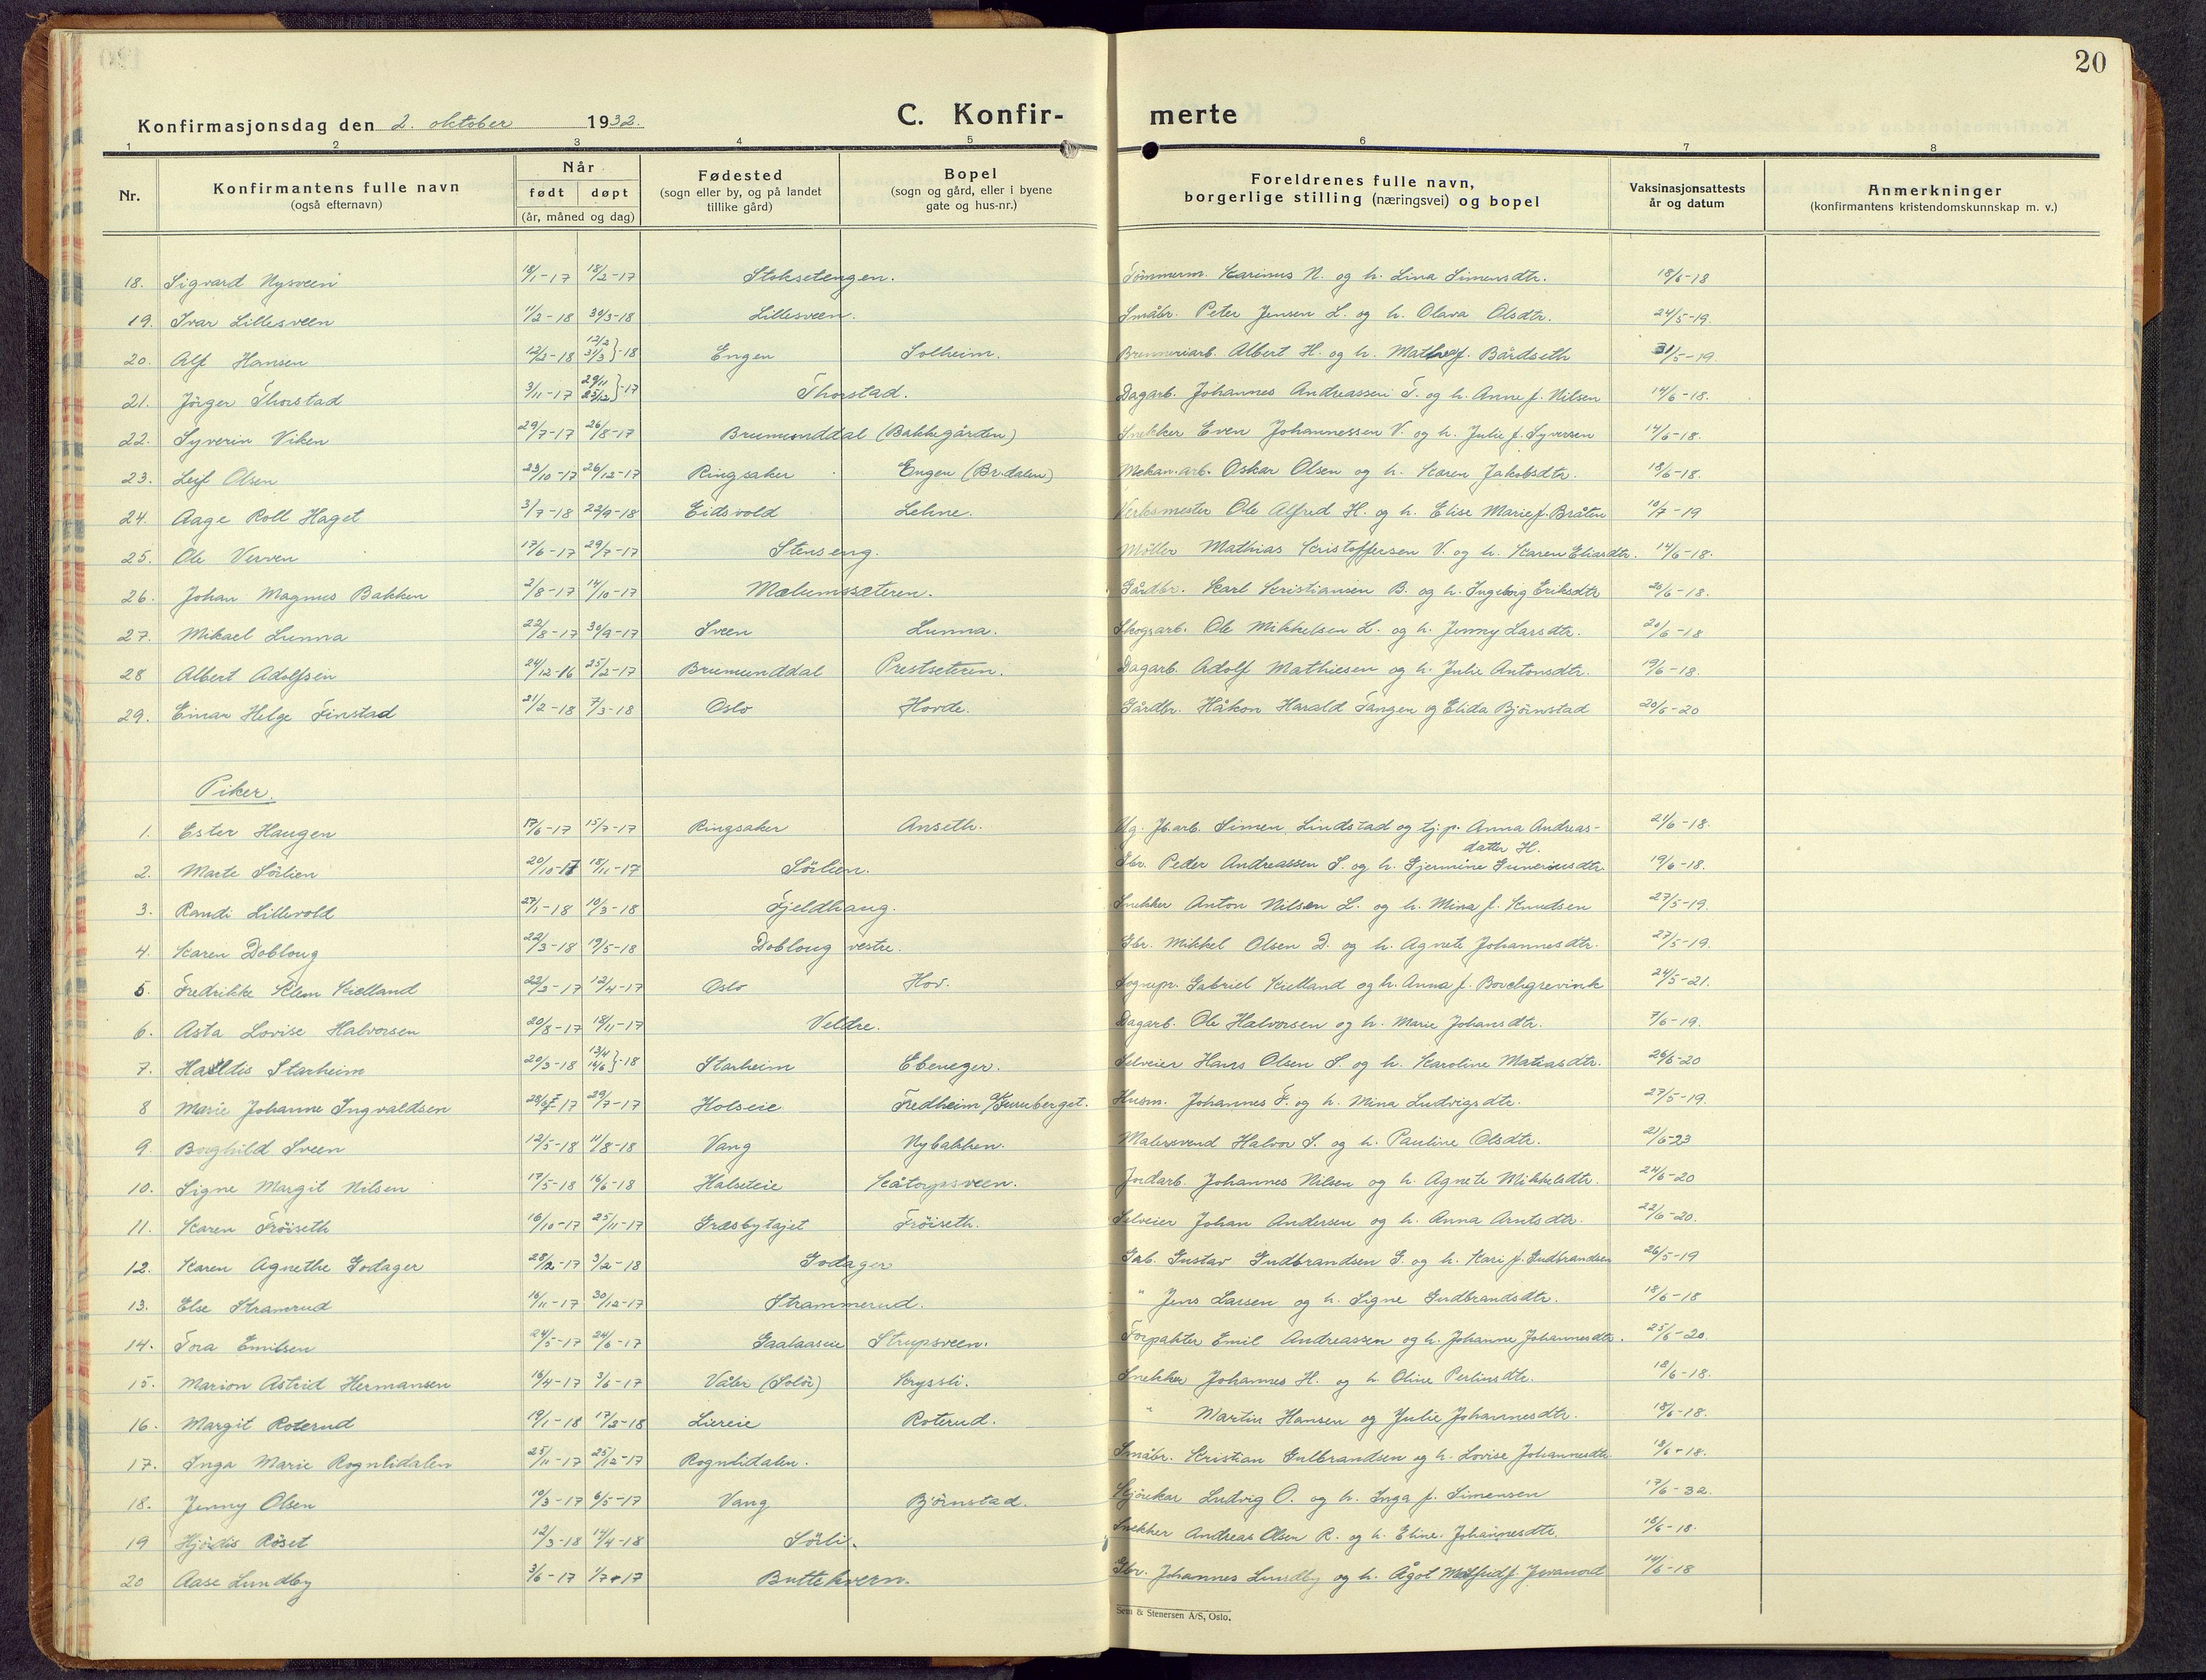 20
Konfirmasjonsdag den 2. oktober 1932.
C. Konfir-
merte
1 2 3 4 5 6 7 8
Nr. Konfirmantens fulle navn (også efternavn) Når født døpt (år, måned og dag) Fødested (sogn eller by, og på landet tillike gård) Bopel (sogn og gård, eller i byene gate og hus-nr.) Foreldrenes fulle navn, borgerlige stilling (næringsvei) og bopel Vaksinasjonsattests år og datum Anmerkninger (konfirmantens kristendomskunnskap m. v.)
18. Sigvard Nysveen 18/1-17 18/2-17 Stoksetengen. Tömmerm. Karinus N. og h. Lina Simensdtr. 18/6-18
19. Ivar Lillesveen 11/2-18 30/3-18 Lillesveen. Småbr. Peter Jensen L. og h. Olava Olsdtr. 24/5-19.
20. Alf Hansen 12/2-18 12/2 31/3}-18 Engen Solheim. Brenneriarb. Albert H. og h. Mathea f. Bårdseth 31/5-19.
21. Jörger Thorstad 3/11-17 29/11 25/12}-17 Thorstad. Dagarb. Johannes Andreassen T. og h. Anne f. Nilsen 14/6-18.
22. Syverin Viken 29/7-17 26/8-17 Brumunddal (Bakkegården) Snekker Even Johannessen V. og h. Julie f. Syversen 14/6-18.
23. Leif Olsen 23/10-17 26/12-17 Ringsaker Engen (Br.dalen) Mekan.arb. Oskar Olsen og h. Karen Jakobsdtr. 18/6-18.
24. Aage Roll Haget 3/7-18 22/9-18 Eidsvold Lehne. Verksmester Ole Alfred H. og h. Elise Marie f. Bråten 10/7-19
25. Ole Verven 17/6-17 29/7-17 Stenseng. Möller Mathias Kristoffersen V. og h. Karen Eliasdtr. 14/6-18.
26. Johan Magnus Bakken 2/8-17 14/10-17 Mælumssæteren. Gårdbr. Karl Kristiansen B. og h. Ingeborg Eriksdtr 20/6-18.
27. Mikael Lunna 22/8-17 30/9-17 Sveen Lunna. Skogsarb. Ole Mikkelsen L. og h. Jenny Larsdtr. 20/6-18
28 Albert Adolfsen 24/12-16 25/2-17 Brumunddal Prestseteren. Dagarb. Adolf Mathiesen og h. Julie Antonsdtr. 19/6-18.
29. Einar Helge Finstad 21/2-18 7/3-18 Oslo Hovde. Gårdbr. Håkon Harald Tangen og Elida Björnstad 20/6-20
Piker.
1. Ester Haugen 17/6-17 15/7-17 Ringsaker Anseth. Ug. Jb.arb. Simen Lindstad og tj.p. Anna Andreas-
datter H. 21/6-18.
2. Marte Sörlien 20/10-17 18/11-17 Sörlien. Gbr. Peder Andreassen S. og h. Gjermine Gunerius dtr. 19/6-18.
3. Randi Lillevold 27/1-18 10/3-18 Fjeldhaug. Snekker Anton Nilsen L. og h. Mina f. Knudsen 27/5-19.
4. Karen Dobloug 22/3-18 19/5-18 Dobloug vestre. Gbr. Mikkel Olsen D. og h. Agnete Johannesdtr. 27/5-19.
5. Fredrikke Klem Kielland 22/3-17 12/4-17 Oslo Hov. Sognepr. Gabriel Kielland og h. Anna f. Borchgrevink 24/5-21.
6. Asta Lovise Halvorsen 20/8-17 18/11-17 Veldre. Dagarb. Ole Halvorsen og h. Marie Johansdtr. 7/6-19.
7. Halldis Starheim 20/3-18 13/4 14/6}-18 Starheim Ebeneger. Selveier Hans Olsen S. og h. Karoline Matiasdtr. 26/6-20
8 Marie Johanne Ingvaldsen 29/7-17 Holseie Fredheim Husm. Johannes F. og h. Mina Ludvigsdtr. 27/5-19.
9. Borghild Sveen 12/5-18 11/8-18 Vang Nybakken. Malersvend Halvor S. og h. Pauline Olsdtr. 21/6-23
10. Signe Margit Nilsen 17/5-18 16/6-18 Halseteie Kåtorpsveen. Jordarb. Johannes Nilsen og h. Agnete Mikkelsdtr. 24/6-20
11. Karen Fröiseth 16/10-17 25/11-17 Græsbytajet Fröiseth. Selveier Johan Andersen og h. Anna Arntsdtr. 22/6-20.
12. Karen Agnethe Godager 28/12-17 3/2-18 Godager Gab. Gustav Gudbrandsen G. og h. Kari f. Gudbrandsen 26/5-19
13. Else Stramrud 16/11-17 30/12-17 Strammerud. " Jens Larsen og h. Signe Gudbrandsdtr. 18/6-18
14. Tora Emilsen 24/5-17 24/6-17 Gaalaaseie Strupsveen. Forpakter Emil Andreassen og h. Johanne Johannesdtr. 25/6-20.
15. Marion Astrid Hermansen 16/4-17 3/6-17 Våler (Solör) Kryssli. Snekker Johannes H. og h. Oline Perlinsdtr. 18/6-18.
16. Margit Roterud 19/1-18 17/3-18 Liereie Roterud. " Martin Hansen og Julie Johannesdtr. 18/6-18.
17. Inga Marie Rognlidalen 25/11-17 25/12-17 Rognlidalen. Småbr. Kristian Gulbrandsen og h. Lovise Johannesdtr. 18/6-18.
18. Jenny Olsen 10/3-17 6/5-17 Vang Björnstad. Kjörekar Ludvig O. og h. Inga f. Simensen 17/6-32.
19 Hjördis Röset 12/3-18 14/4-18 Sörli. Snekker Andreas Olsen R. og h. Eline Johannesdtr. 18/6-18.
20 Aase Lundby 3/6-17 1/7-17 Buttekvern. Gbr. Johannes Lundby og h. Ågot 14/6-18
Sem & Stenersen A/S, Oslo.